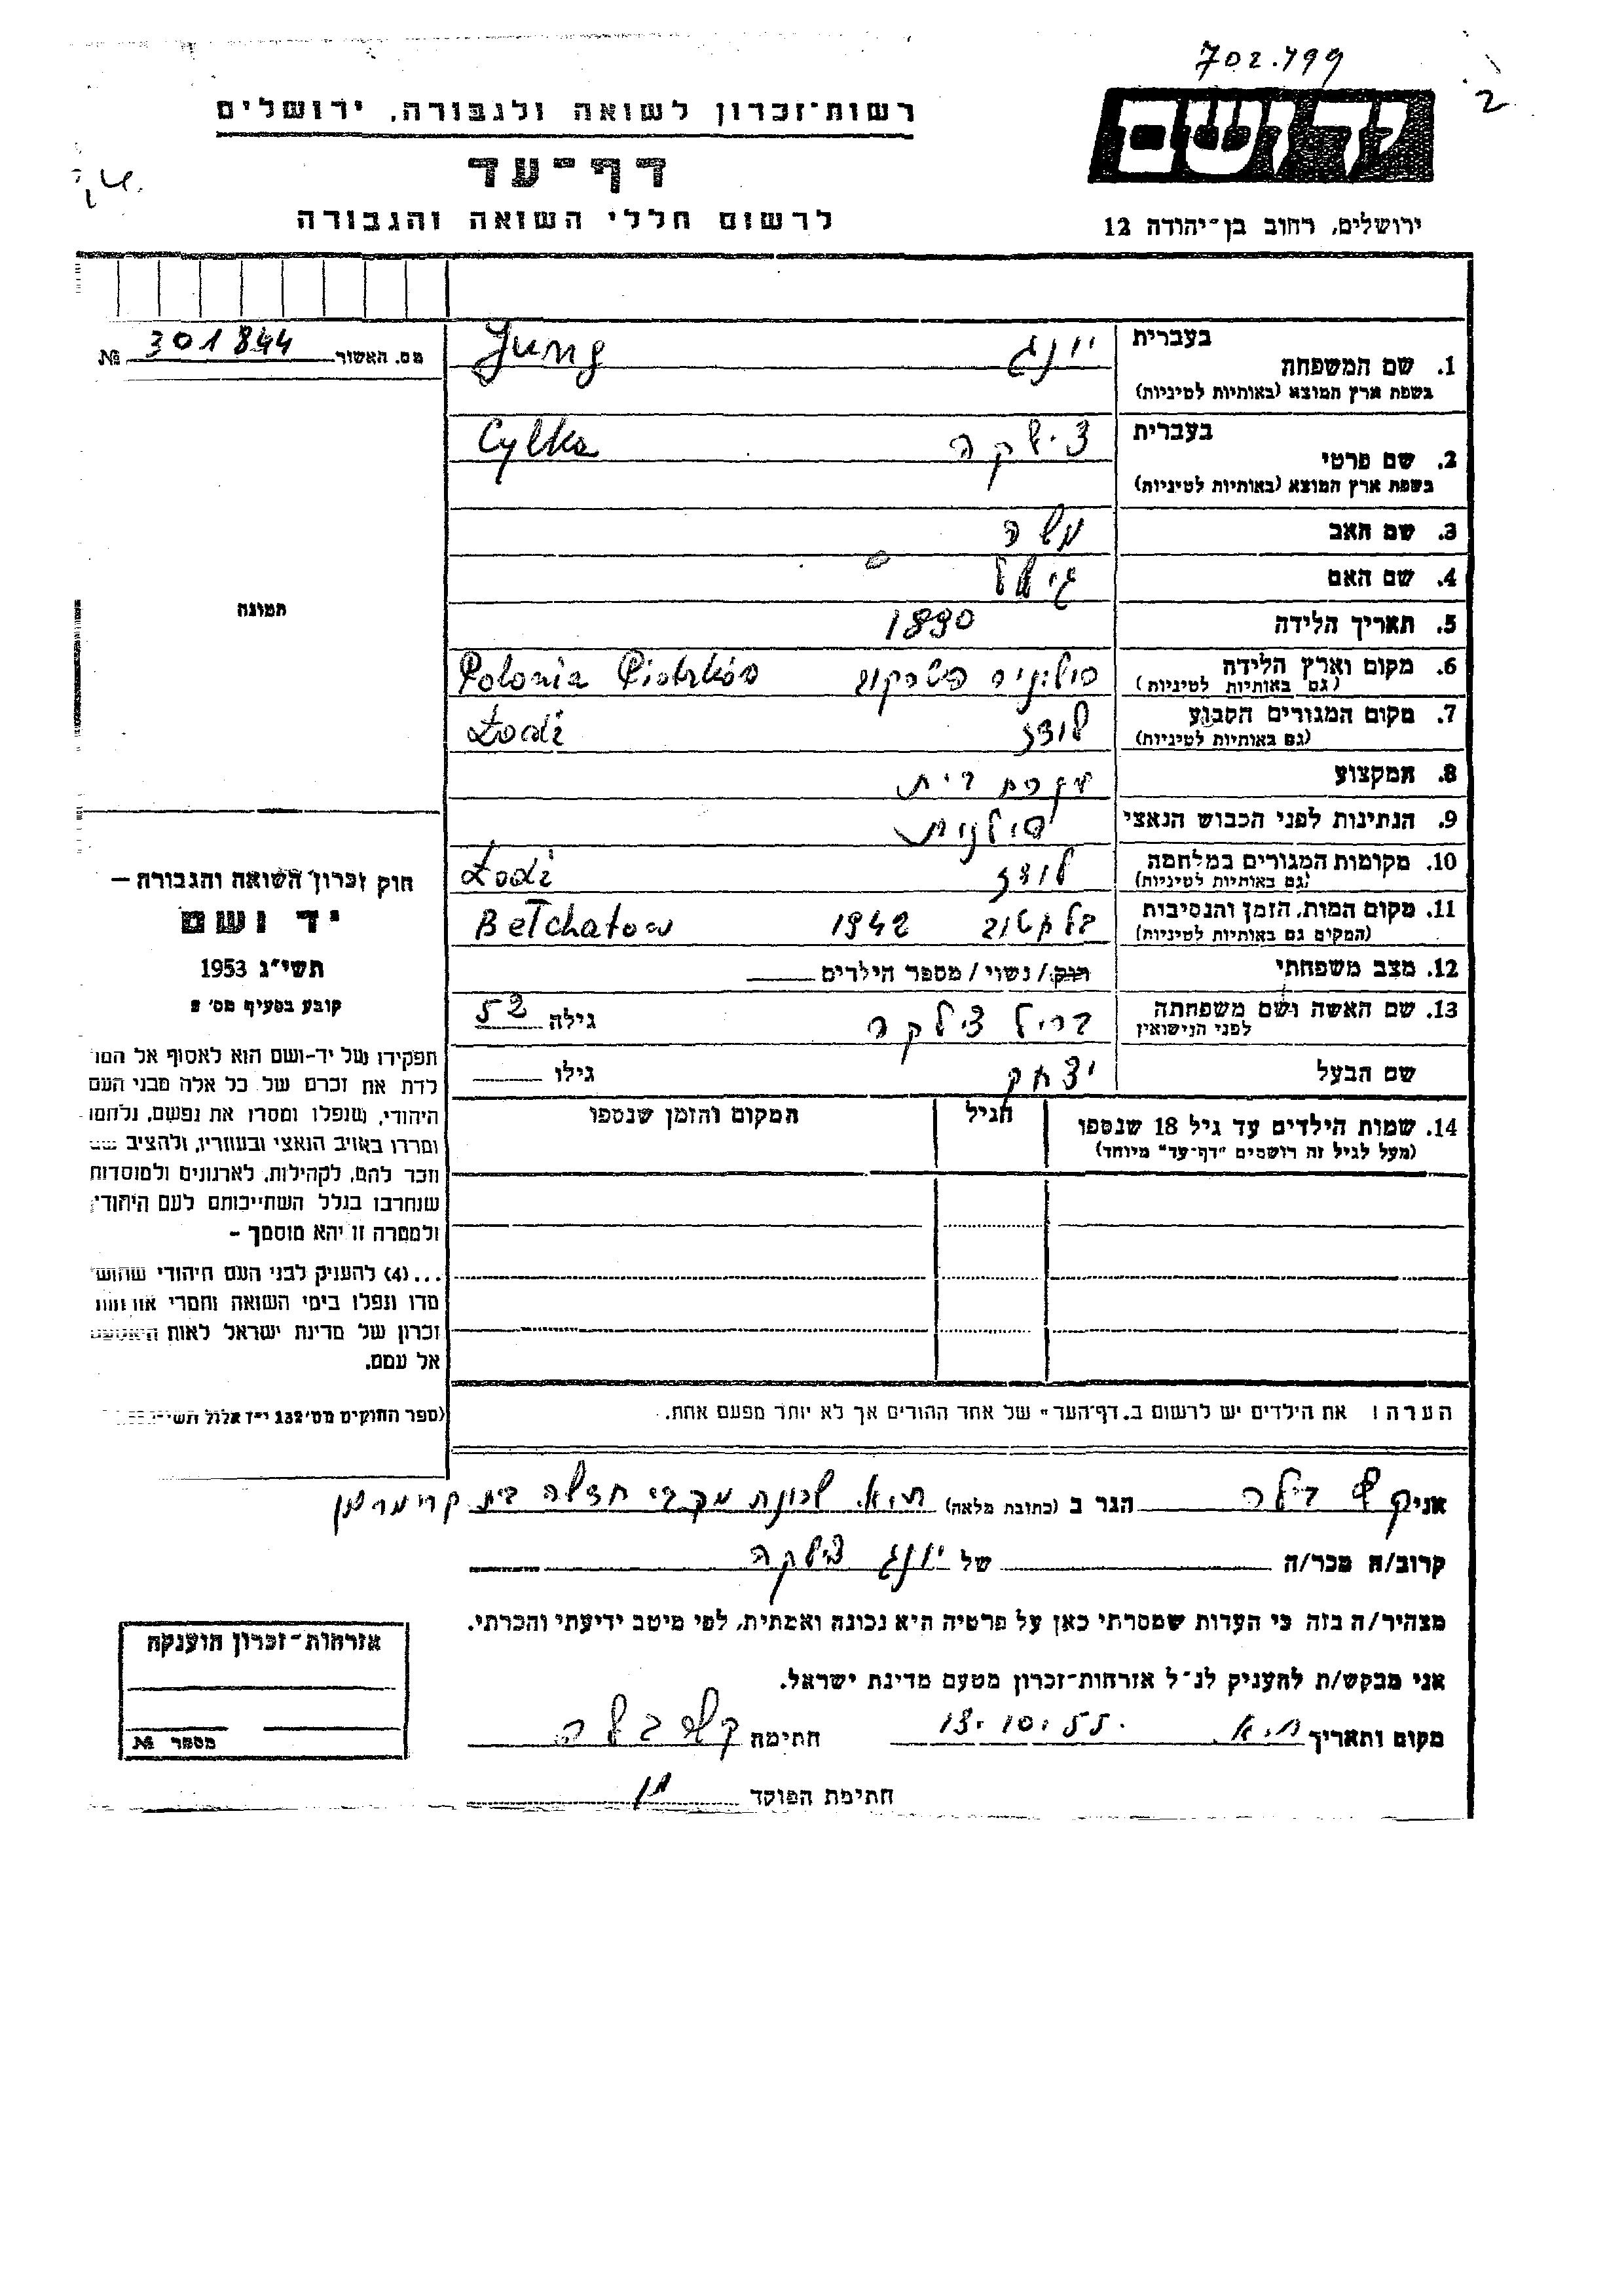 702.499
2
ידושם
רשות־זכרון לשואה ולגבורה. ירושלים
דף־עד
לרשום חללי השואה והגבורה
ירושלים, רחוב בן־יהודה 12
מס. האשור 301844 №
תמונה
חוק זכרון השואה והגבורה —
יד ושם
תשי"ג 1953
קובע בסעיף מס' 2
תפקידו של יד-ושם הוא לאסוף אל המו
לדת את זכרם של כל אלה מבני העם
היהודי, שנפלו ומסרו את נפשם, נלחמו
ומרדו באויב הנאצי ובעוזריו, ולהציב שם
וזכר להם, לקהילות, לארגונים ולמוסדות
שנחרבו בגלל השתייכותם לעם היהודי;
ולמטרה זו יהא מוסמך –
...(4) להעניק לבני העם היהודי שהוש־
מדו ונפלו בימי השואה והמרי אזרחות
זכרון של מדינת ישראל לאות היאספם
אל עמם.
(ספר החוקים מס' 132 י"ז אלול תשי"ג
בעברית יונג Jung
1. שם המשפחה
בשפת ארץ המוצא (באותיות לטיניות)
בעברית צילקה Cylka
2. שם פרטי
בשפת ארץ המוצא (באותיות לטיניות)
3. שם האב משה
4. שם האם
5. תאריך הלידה 1890
6. מקום וארץ הלידה פולוניה פטרקוב Polonia Piotrków
(גם באותיות לטיניות)
7. מקום המגורים הקבוע לודז Łodź
(גם באותיות לטיניות)
8. המקצוע עקרת בית
9. הנתינות לפני הכבוש הנאצי פולנית
10. מקומות המגורים במלחמה לודז Łodź
(גם באותיות לטיניות)
11. מקום המות, הזמן והנסיבות בלחטוב 1942 Bełchatow
(המקום גם באותיות לטיניות)
12. מצב משפחתי רווק/ נשוי/ מספר הילדים
13. שם האשה ושם משפחתה צילקה גילה 52
לפני הנישואין
שם הבעל יצחק גילו
14. שמות הילדים עד גיל 18 שנספו הגיל המקום והזמן שנספו
(מעל לגיל זה רושמים "דף־עד" מיוחד)
הערה ו את הילדים יש לרשום ב.דף־העד" של אחד ההורים אך לא יותר מפעם אחת.
אני הגר ב (כתובת מלאה) ת.א. שכונת מכבי חדשה בית קרימרמן
קרוב/ה מכר/ה של יונג צילקה
מצהיר/ה בזה כי העדות שמסרתי כאן על פרטיה היא נכונה ואמתית, לפי מיטב ידיעתי והכרתי.
אני מבקש/ת להעניק לנ"ל אזרחות־זכרון מטעם מדינת ישראל.
מקום ותאריך ת.א. 13.10.55 חתימה
חתימת הפוקד
אזרחות־זכרון הוענקה
מספר №